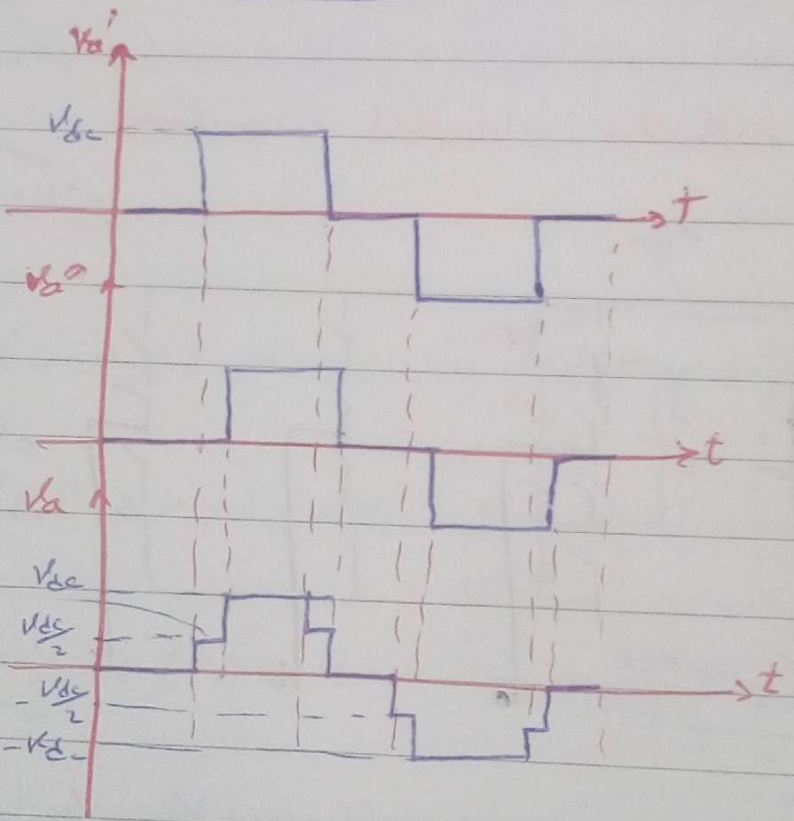 Va'
Vdc
t
Va"
t
Va
Vdc
Vdc/2
t
-Vdc/2
-Vdc